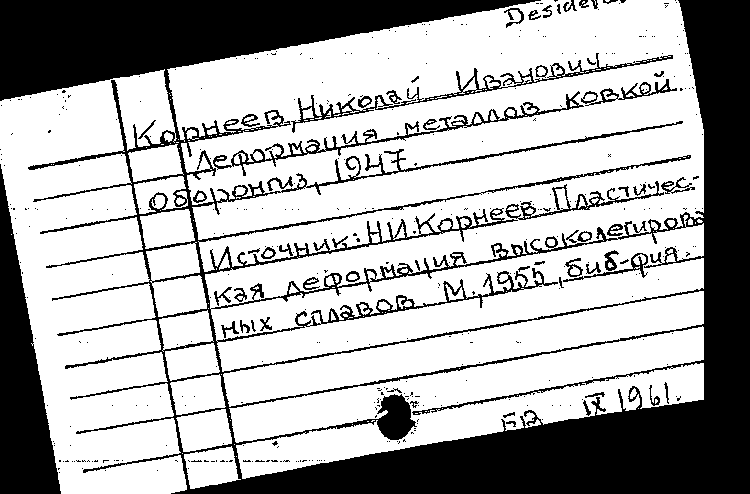 Desidera
Корнеев, Николай Иванович.
Деформация металлов ковкой.
Оборонгиз, 1947.
Источник: Н.И. Корнеев. Пластичес-
кая деформация высоколегирова
ных сплавов. М., 1955, биб-фия.
IX 1961.